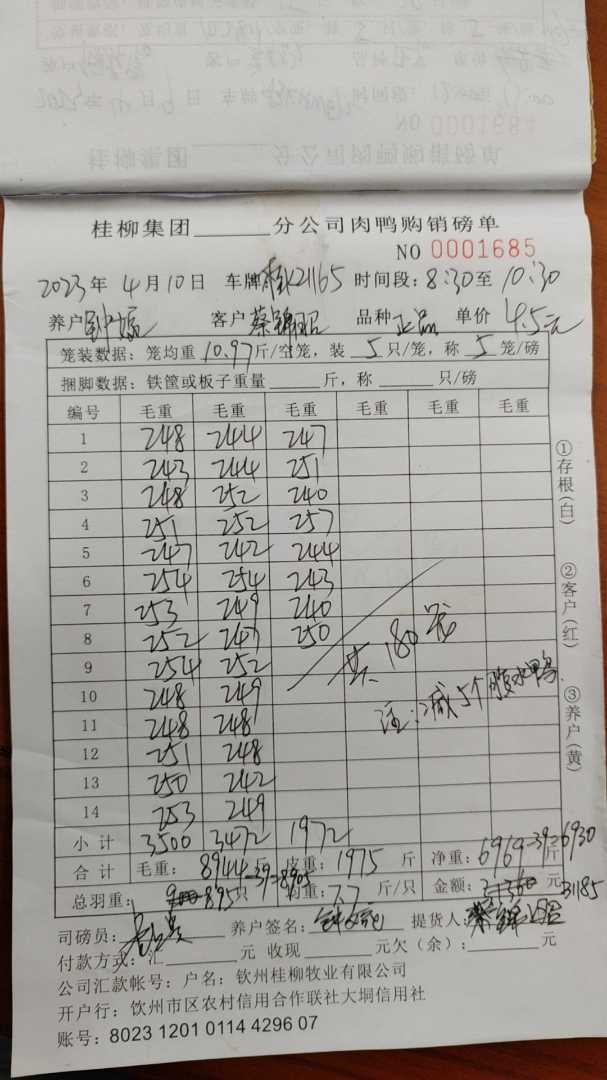 NO 0001684
桂柳集团______分公司肉鸭购销磅单
NO 0001685
2023年 4月10日 车牌桂K21165 时间段：8:30至10:30
养户 客户蔡锦昭 品种正品 单价4.5元
笼装数据：笼均重10.97斤/空笼，装5只/笼，称5笼/磅
捆脚数据：铁筐或板子重量______斤，称______只/磅
编号 毛重 毛重 毛重 毛重 毛重 毛重
1 248 244 247
2 243 244 251
3 248 252 240
4 251 252 257
5 247 242 244
6 254 254 243
7 253 249 240
8 252 247 250
9 254 252
10 248 249
11 248 248
12 251 248
13 250 242
14 253 249
共180笼
注：减5个腹水鸭
小计 3500 3472 1972
合计 毛重：8944斤 皮重：1975斤 净重：6969斤-39=6930
总羽重：900 895只 -39=8905 均重：7.7斤/只 金额：元 31185
司磅员： 养户签名： 提货人：蔡锦昭
付款方式：汇______元 收现______元欠（余）：______元
公司汇款帐号：户名：钦州桂柳牧业有限公司
开户行：饮州市区农村信用合作联社大垌信用社
账号：8023 1201 0114 4296 07
①存根(白)
②客户(红)
③养户(黄)